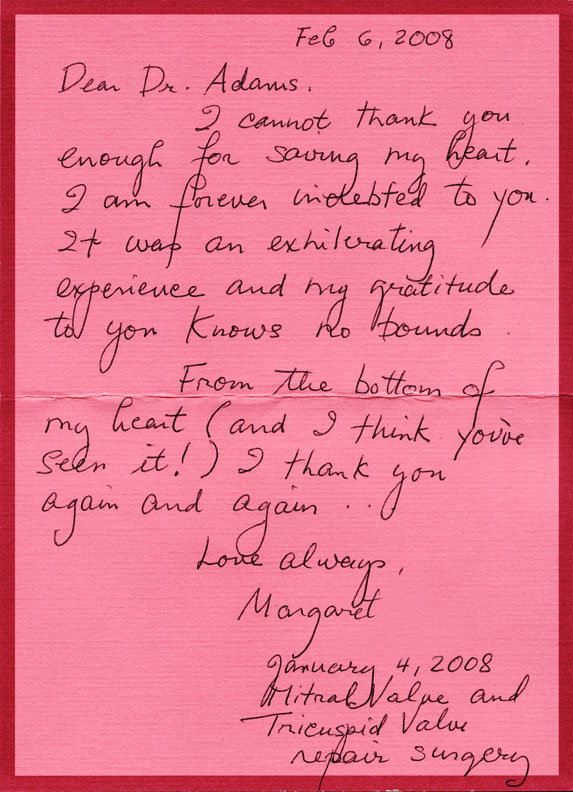 Feb 6, 2008
Dear Dr. Adams.
I cannot thank you
enough for saving my heart.
I am forever indebted to you.
It was an exhilerating
experience and my gratitude
to you knows no bounds.
From the bottom of
my heart (and I think you've
seen it!) I thank you
again and again . . .
Love always,
Margaret
January 4, 2008
Mitral Valve and
Tricuspid Valve
repair surgery